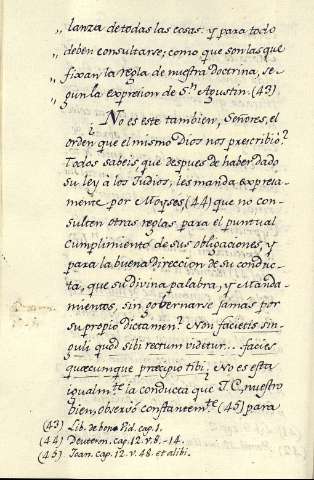 „ lanza de todas las cosas. y para todo
„ deben consultarse; como que son las que
„ fixan la regla de nuestra Doctrina, se-
„ gun la expresion de Sn. Agustin. (43)
No es este tambien, Señores, el
orden que el mismo Dios nos prescribió?
Todos sabeis, que despues de haber dado
su ley à los Judios, les manda expresa-
mente por Moyses (44) que no con-
sulten otras reglas para el puntual
cumplimiento de sus obligaciones, y
para la buena direccion de su conduc-
ta, que su divina palabra, y Manda-
mientos, sin gobernarse jamas por
su propio dictamen? Non facietis sin-
guli quod sibi rectum videtur... facies
quæcumque præcipio tibi. No es esta
igualmte. la conducta que J.C. nuestro
bien, observó constantemte. (45) para
(43) Lib. de bono Vid. cap. 1.
(44) Deuteron. cap. 12. v. 8.-14.
(45) Joan. cap. 12. v. 48. et alibi.